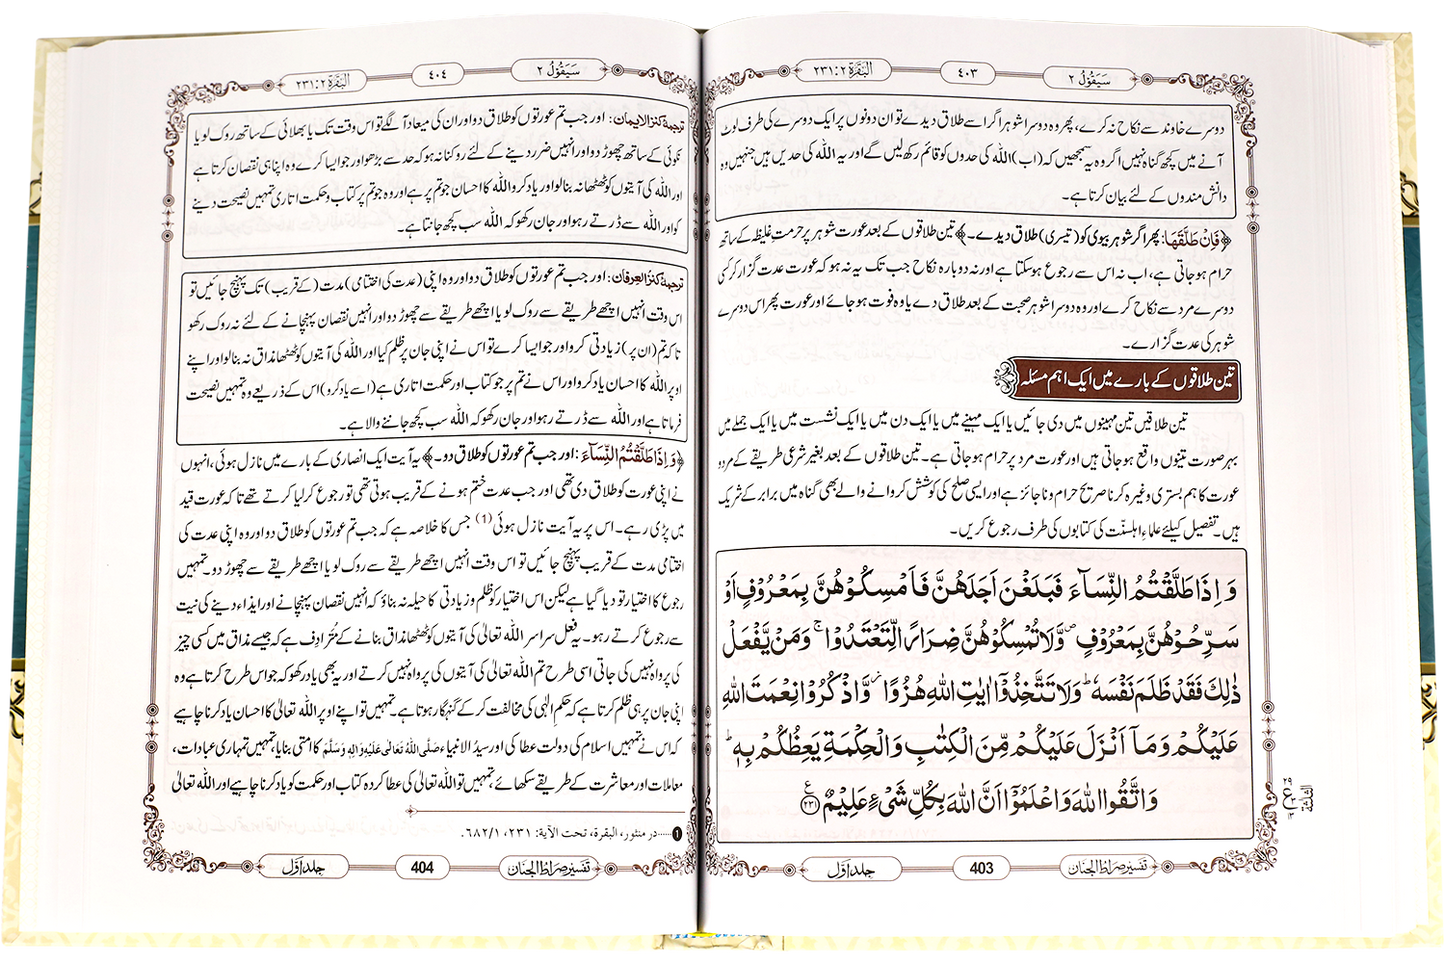 سَيَقُوْلُ ٢
٤٠٣
اَلْبَقَرَة ٢: ٢٣١
دوسرے خاوند سے نکاح نہ کرے، پھر وہ دوسرا شوہر اگر اسے طلاق دیدے تو ان دونوں پر ایک دوسرے کی طرف لوٹ
آنے میں کچھ گناہ نہیں اگر وہ یہ سمجھیں کہ (اب) اللہ کی حدوں کو قائم رکھ لیں گے اور یہ اللہ کی حدیں ہیں جنہیں وہ
دانش مندوں کے لئے بیان کرتا ہے۔
﴿فَاِنْ طَلَّقَهَا: پھر اگر شوہر بیوی کو (تیسری) طلاق دیدے۔﴾ تین طلاقوں کے بعد عورت شوہر پر حرمتِ غلیظہ کے ساتھ
حرام ہو جاتی ہے، اب نہ اس سے رجوع ہوسکتا ہے اور نہ دوبارہ نکاح جب تک یہ نہ ہو کہ عورت عدت گزار کر کسی
دوسرے مرد سے نکاح کرے اور وہ دوسرا شوہر صحبت کے بعد طلاق دے یا وہ فوت ہو جائے اور عورت پھر اس دوسرے
شوہر کی عدت گزارے۔
تین طلاقوں کے بارے میں ایک اہم مسئلہ
تین طلاقیں تین مہینوں میں دی جائیں یا ایک مہینے میں یا ایک دن میں یا ایک نشست میں یا ایک جملے میں
بہر صورت تینوں واقع ہو جاتی ہیں اور عورت مرد پر حرام ہو جاتی ہے۔ تین طلاقوں کے بعد بغیر شرعی طریقے کے مرد و
عورت کا ہم بستری وغیرہ کرنا صریح حرام و ناجائز ہے اور ایسی صلح کی کوشش کروانے والے بھی گناہ میں برابر کے شریک
ہیں۔ تفصیل کیلئے علماءِ اہلسنّت کی کتابوں کی طرف رجوع کریں۔
وَ اِذَا طَلَّقْتُمُ النِّسَآءَ فَبَلَغْنَ اَجَلَهُنَّ فَاَمْسِكُوْهُنَّ بِمَعْرُوْفٍ اَوْ
سَرِّحُوْهُنَّ بِمَعْرُوْفٍ ۪ وَّ لَا تُمْسِكُوْهُنَّ ضِرَارًا لِّتَعْتَدُوْا ۚ وَ مَنْ یَّفْعَلْ
ذٰلِكَ فَقَدْ ظَلَمَ نَفْسَهٗ ؕ وَ لَا تَتَّخِذُوْۤا اٰیٰتِ اللّٰهِ هُزُوًا ؗ وَّ اذْكُرُوْا نِعْمَتَ اللّٰهِ
عَلَیْكُمْ وَ مَاۤ اَنْزَلَ عَلَیْكُمْ مِّنَ الْكِتٰبِ وَ الْحِكْمَةِ یَعِظُكُمْ بِهٖ ؕ
وَ اتَّقُوا اللّٰهَ وَ اعْلَمُوْۤا اَنَّ اللّٰهَ بِكُلِّ شَیْءٍ عَلِیْمٌ ﴿٢٣١﴾
تفسیر صراط الجنان
403
جلد اوّل
سَيَقُوْلُ ٢
٤٠٤
اَلْبَقَرَة ٢: ٢٣١
ترجمۂ کنزالایمان: اور جب تم عورتوں کو طلاق دو اور ان کی میعاد آ لگے تو اس وقت تک یا بھلائی کے ساتھ روک لو یا
نکوئی کے ساتھ چھوڑ دو اور انہیں ضرر دینے کے لئے روکنا نہ ہو کہ حد سے بڑھو اور جو ایسا کرے وہ اپنا ہی نقصان کرتا ہے
اور اللہ کی آیتوں کو ٹھٹھا نہ بنا لو اور یاد کرو اللہ کا احسان جو تم پر ہے اور وہ جو تم پر کتاب و حکمت اتاری تمہیں نصیحت دینے
کو اور اللہ سے ڈرتے رہو اور جان رکھو کہ اللہ سب کچھ جانتا ہے۔
ترجمۂ کنزالعرفان: اور جب تم عورتوں کو طلاق دو اور وہ اپنی (عدت کی اختتامی) مدت (کے قریب) تک پہنچ جائیں تو
اس وقت انہیں اچھے طریقے سے روک لو یا اچھے طریقے سے چھوڑ دو اور انہیں نقصان پہنچانے کے لئے نہ روک رکھو
تاکہ تم (ان پر) زیادتی کرو اور جو ایسا کرے تو اس نے اپنی جان پر ظلم کیا اور اللہ کی آیتوں کو ٹھٹھا مذاق نہ بنا لو اور اپنے
اوپر اللہ کا احسان یاد کرو اور اس نے تم پر جو کتاب اور حکمت اتاری ہے (اسے یاد کرو) اس کے ذریعے وہ تمہیں نصیحت
فرماتا ہے اور اللہ سے ڈرتے رہو اور جان رکھو کہ اللہ سب کچھ جاننے والا ہے۔
﴿وَ اِذَا طَلَّقْتُمُ النِّسَآءَ: اور جب تم عورتوں کو طلاق دو۔﴾ یہ آیت ایک انصاری کے بارے میں نازل ہوئی، انہوں
نے اپنی عورت کو طلاق دی تھی اور جب عدت ختم ہونے کے قریب ہوتی تھی تو رجوع کرلیا کرتے تھے تاکہ عورت قید
میں پڑی رہے۔ اس پر یہ آیت نازل ہوئی (1) جس کا خلاصہ ہے کہ جب تم عورتوں کو طلاق دو اور وہ اپنی عدت کی
اختتامی مدت کے قریب پہنچ جائیں تو اس وقت انہیں اچھے طریقے سے روک لو یا اچھے طریقے سے چھوڑ دو۔ تمہیں
رجوع کا اختیار تو دیا گیا ہے لیکن اس اختیار کو ظلم و زیادتی کا حیلہ نہ بناؤ کہ انہیں نقصان پہنچانے اور ایذاء دینے کی نیت
سے رجوع کرتے رہو۔ یہ فعل سراسر اللہ تعالیٰ کی آیتوں کو ٹھٹھا مذاق بنانے کے مُتَرادِف ہے کہ جیسے مذاق میں کسی چیز
کی پرواہ نہیں کی جاتی اسی طرح تم اللہ تعالیٰ کی آیتوں کی پرواہ نہیں کرتے اور یہ بھی یاد رکھو کہ جو اس طرح کرتا ہے وہ
اپنی جان پر ہی ظلم کرتا ہے کہ حکمِ الٰہی کی مخالفت کر کے گنہگار ہوتا ہے۔ تمہیں تو اپنے اوپر اللہ تعالیٰ کا احسان یاد کرنا چاہیے
کہ اس نے تمہیں اسلام کی دولت عطا کی اور سیدُ الانبیاء صَلَّی اللہُ تَعَالٰی عَلَیْہِ وَاٰلِہٖ وَسَلَّمَ کا امتی بنایا، تمہیں تمہاری عبادات،
معاملات اور معاشرت کے طریقے سکھائے، تمہیں تو اللہ تعالیٰ کی عطا کردہ کتاب اور حکمت کو یاد کرنا چاہیے اور اللہ تعالیٰ
1.....در منثور، البقرة، تحت الآیة: ٢٣١، ٦٨٢/١.
تفسیر صراط الجنان
404
جلد اوّل